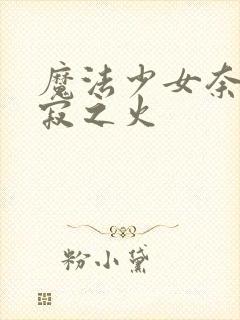 魔法少女奈
寂之火
粉小黛